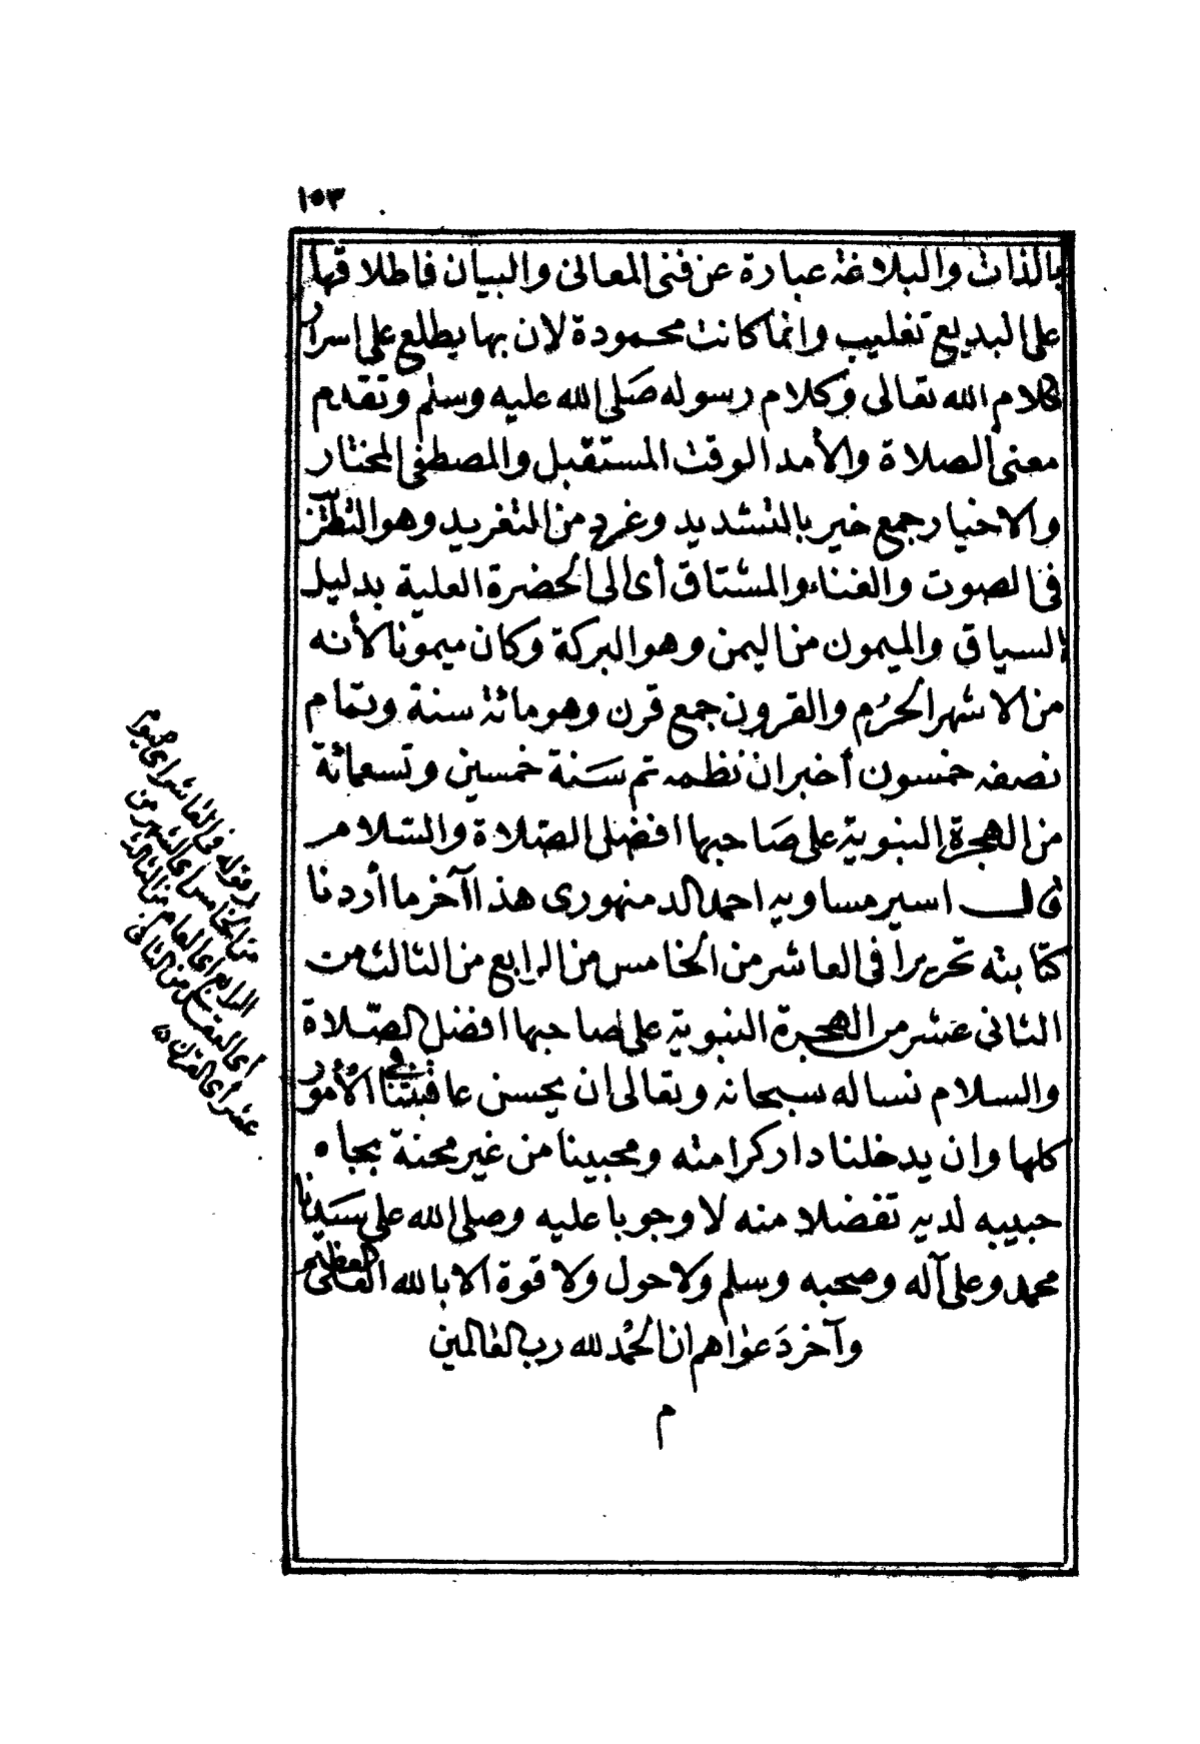 ١٥٣
بالذات والبلاغة عبارة عن فنى المعانى والبيان فاطلاقها
على البديع تغليب وانما كانت محمودة لان بها يطلع على اسرار
كلام الله تعالى وكلام رسوله صَلى الله عليه وسلم وتقدم
معنى الصلاة والأمد الوقت المستقبل والمصطفى المختار
والاخيار جمع خير بالتشديد وغرد من التغريد وهو التطرّيب
فى الصوت والغناء والمشتاق أى الى الحضرة العلية بدليل
السياق والميمون من اليمن وهو البركة وكان ميمونا لأنه
من الاشهر الحرُم والقرون جمع قرن وهو مائة سنة وتمام
نصفه خمسون أخبر ان نظمه تم سَنة خمسين وتسعمائة
من الهجرة النبوية على صَاحبها افضل الصّلاة والسّلام
قال اسير مساويه احمد الدمنهورى هذا آخر ما أردنا
كتابته تحريرا فى العاشر من الخامس من الرابع من الثالث من
الثانى عشر من الهجرة النبوية على صاحبها افضل الصّلاة
والسلام نساله سبحانه وتعالى ان يحسن عاقبتنا فى الأمور
كلها وان يدخلنا دار كرامته ومحبينا من غير محنة بجاه
حبيبه لديه تفضلا منه لا وجوبا عليه وصلى الله على سَيدنا
محمد وعلى آله وصحبه وسلم ولا حول ولا قوة الا بالله العلى العظيم
وآخر دَعواهم ان الحمْد لله رب العالمين
م
قوله فى العاشر أى اليوم
من الخامس أى الشهر من
الرابع أى العام من الثالث
أى العقد من الثانى
عشر أى القرن